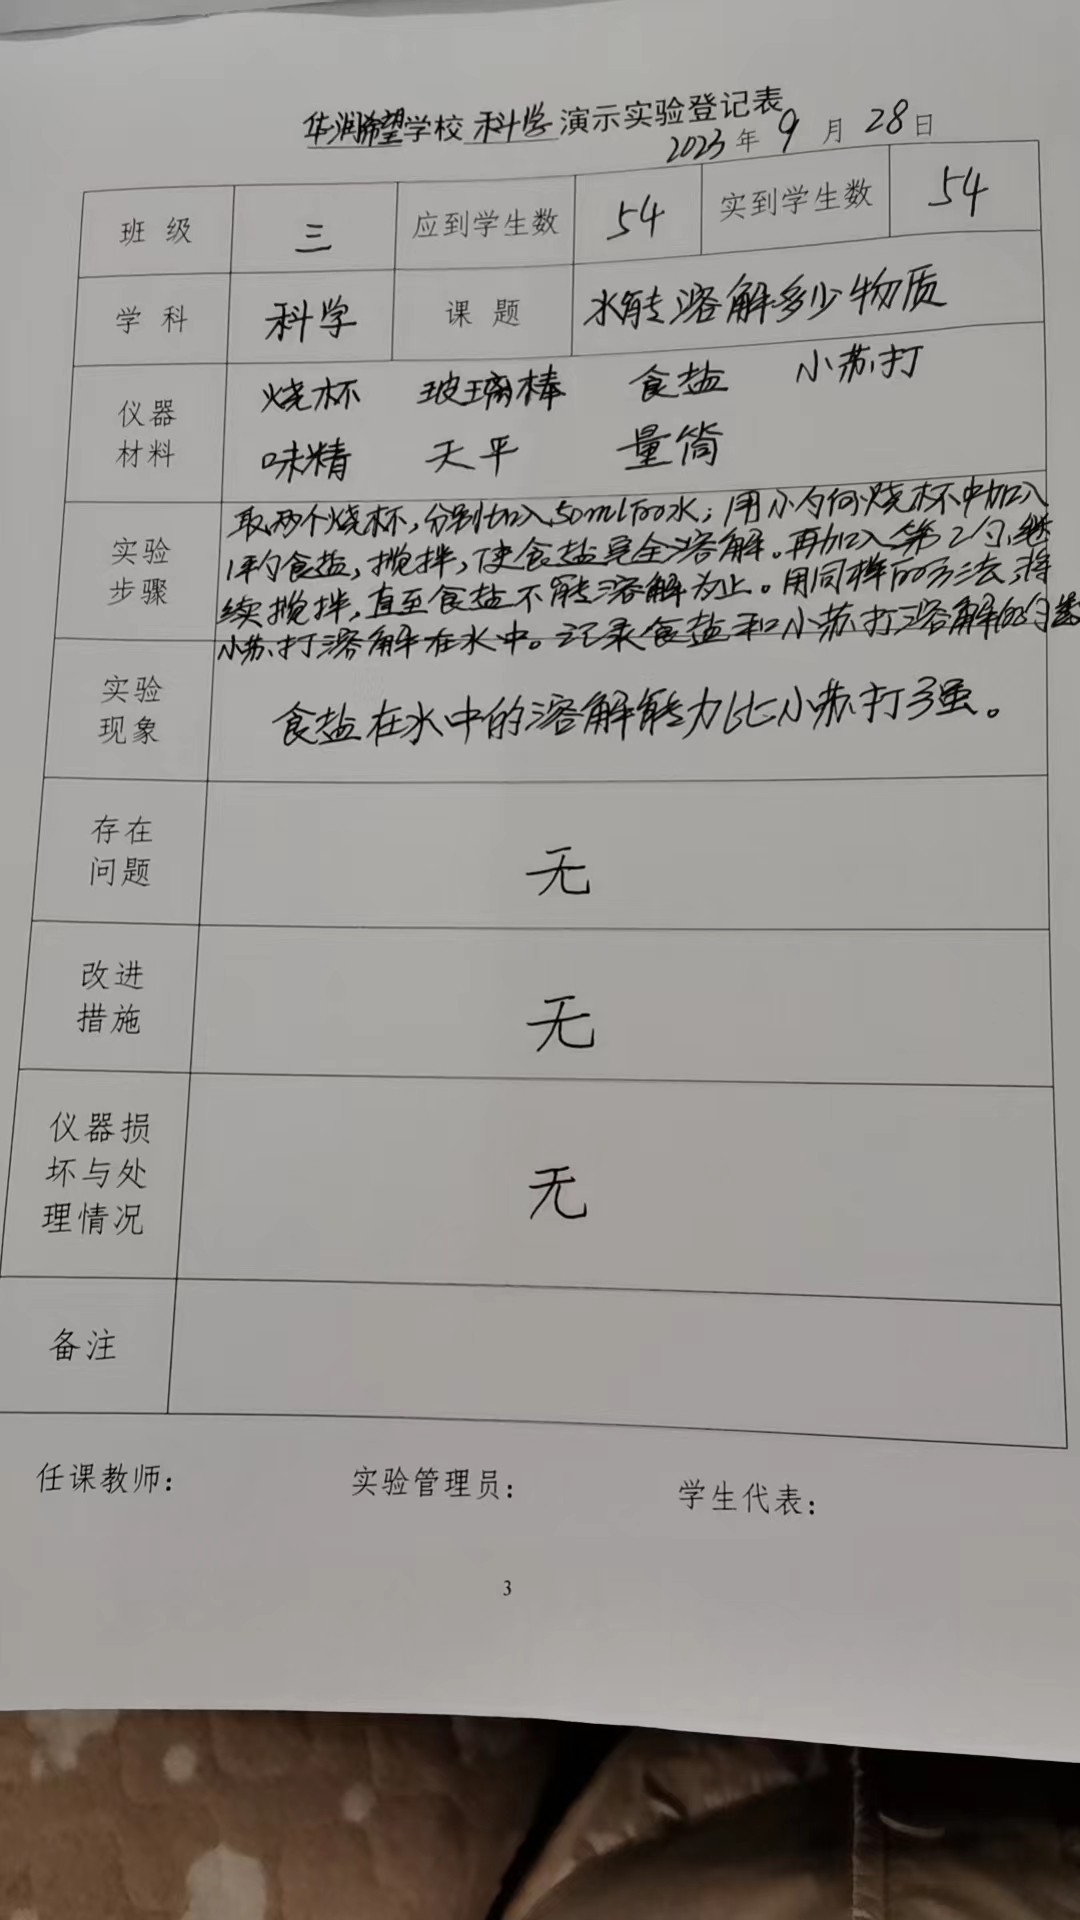 华润希望学校科学演示实验登记表
2023年9月28日
班级 三 应到学生数 54 实到学生数 54
学科 科学 课题 水能溶解多少物质
仪器材料
烧杯 玻璃棒 食盐 小苏打
味精 天平 量筒
实验步骤
取两个烧杯,分别加入50ml的水;用小勺向烧杯中加入
1平勺食盐,搅拌,使食盐完全溶解。再加入第2勺,继
续搅拌,直至食盐不能溶解为止。用同样的方法,将
小苏打溶解在水中。记录食盐和小苏打溶解的勺数
实验现象
食盐在水中的溶解能力比小苏打强。
存在问题
无
改进措施
无
仪器损坏与处理情况
无
备注
任课教师: 实验管理员: 学生代表:
3